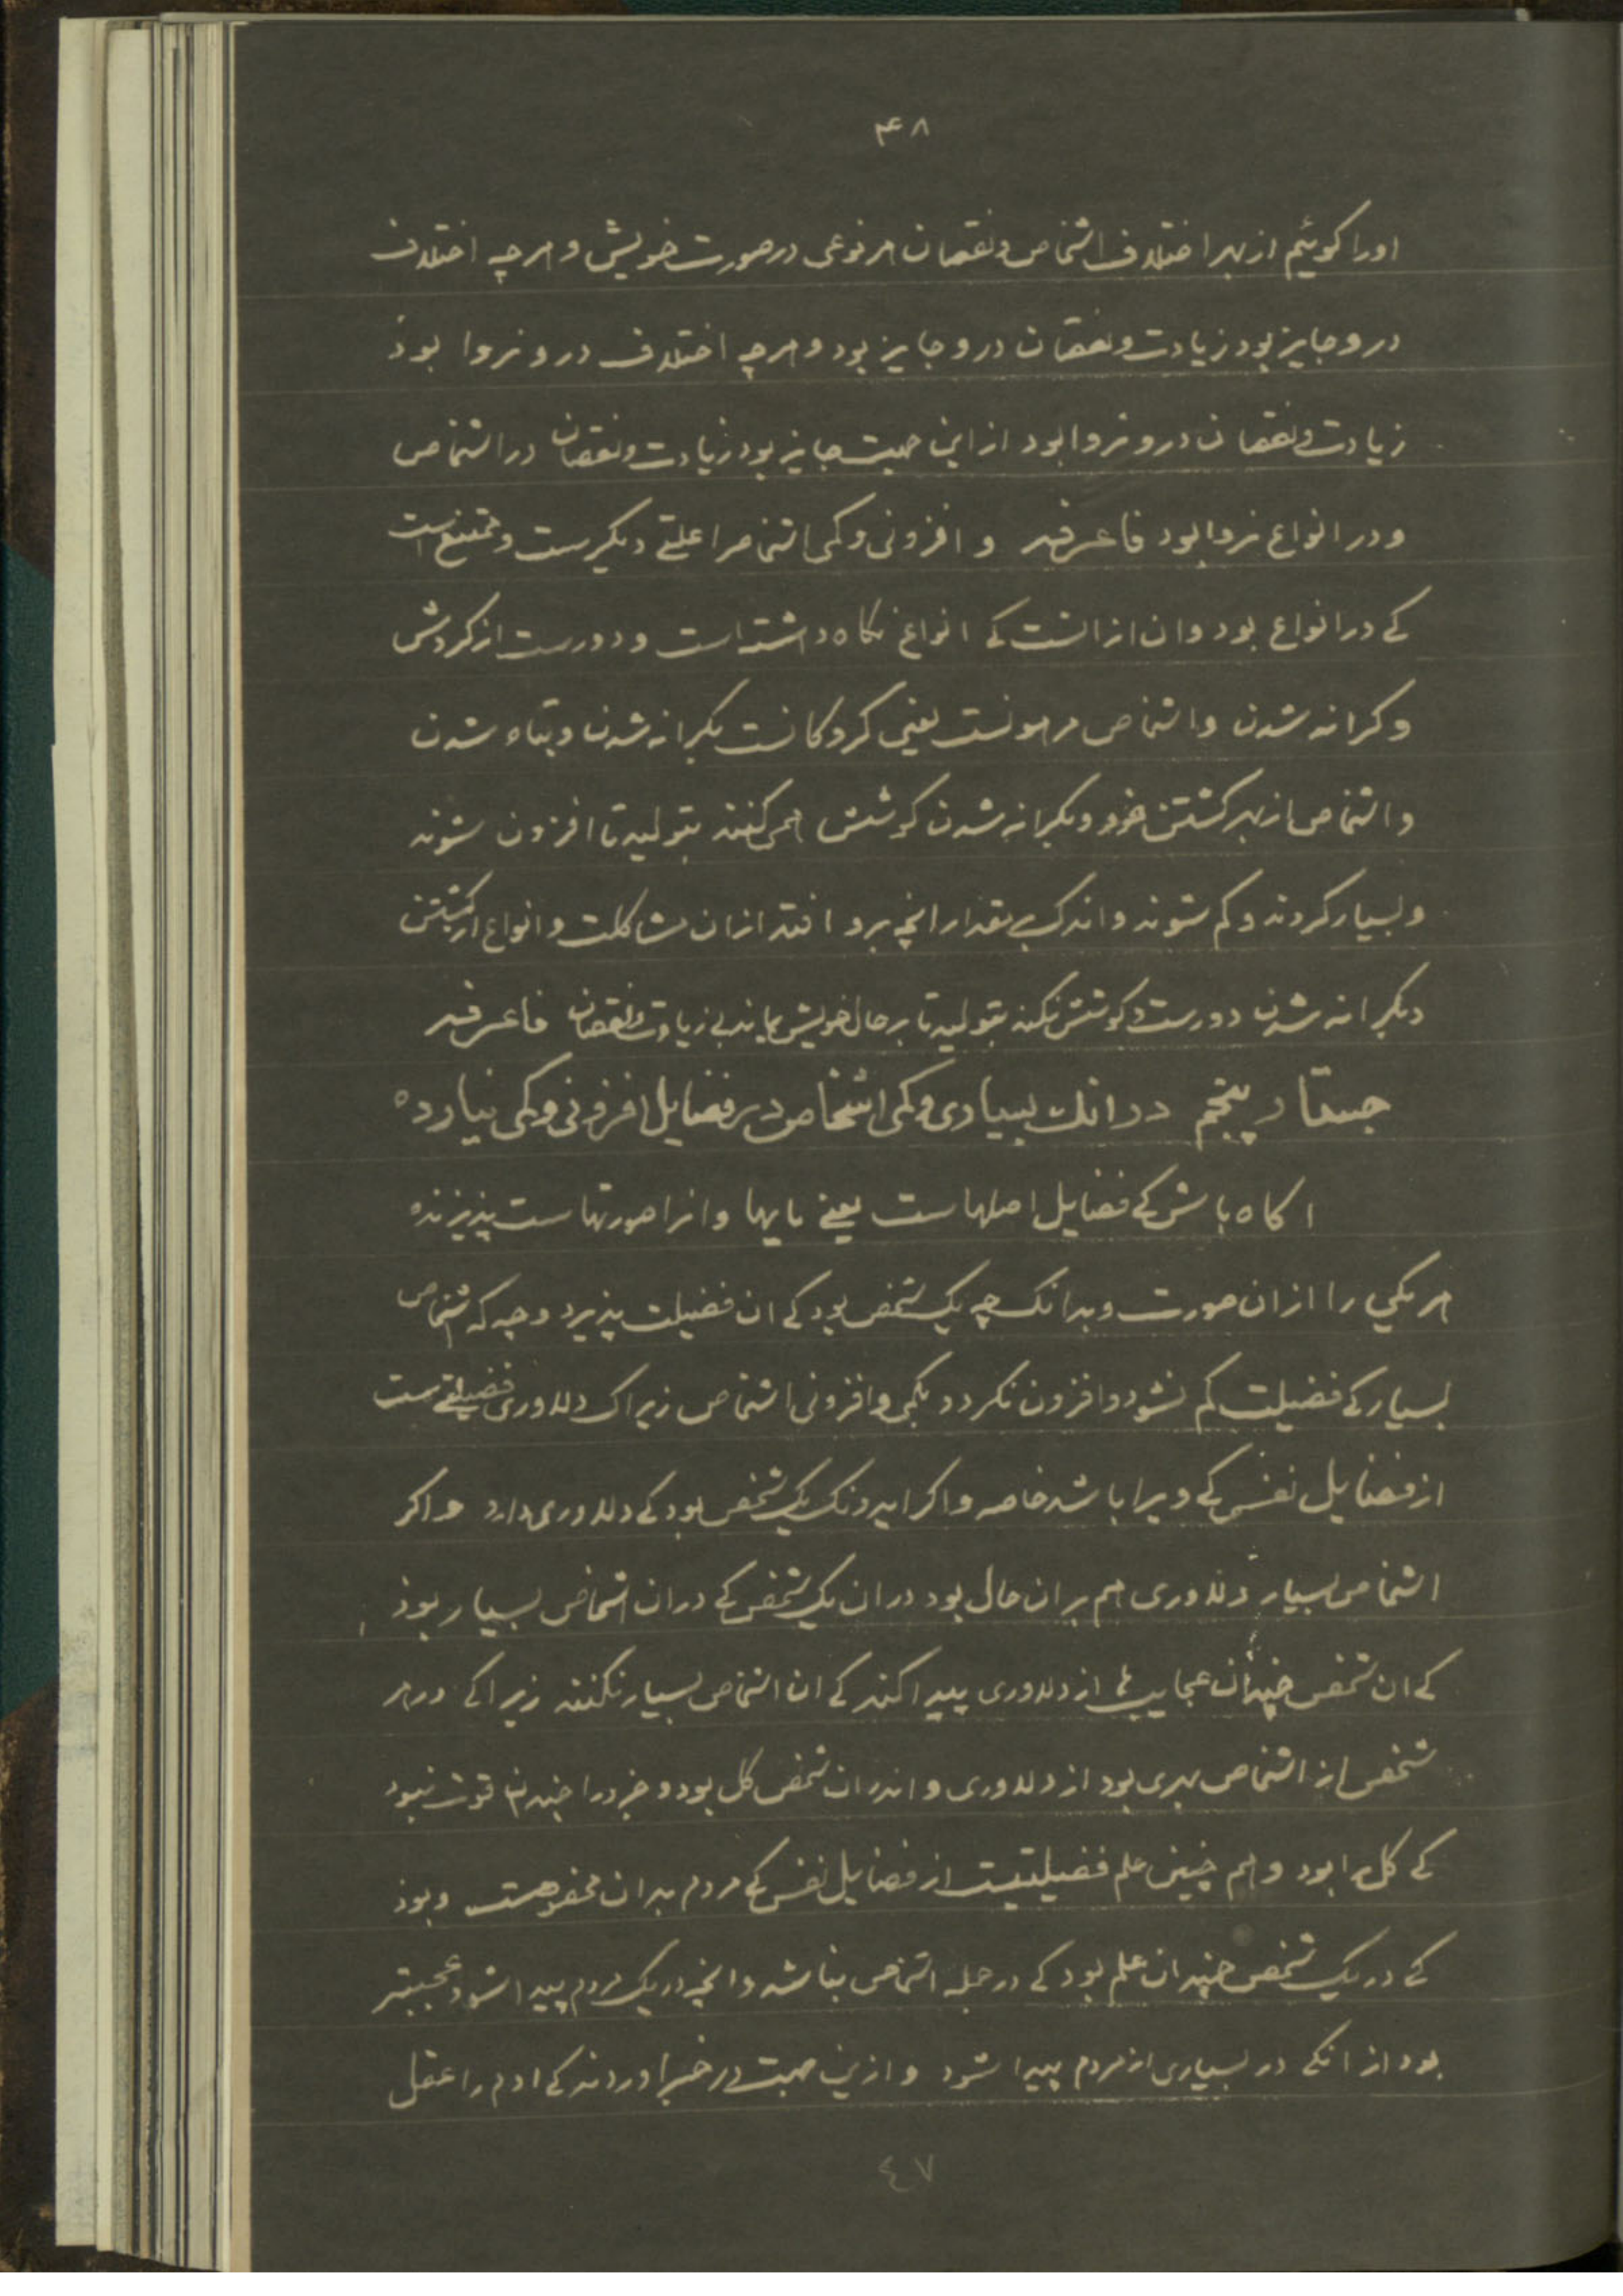 ۴۸
اورا کوئیم از بهر اختلاف اشخاص و نقصان هر نوعی در صورت خویش و هرچه اختلاف
درو جایز بود زیادت و نقصان درو جایز بود و هرچه اختلاف درو نروا بود
زیادت و نقصان درو نروا بود از این جهت جایز بود زیادت و نقصان در اشخاص
و در انواع نروا بود فاعرفه و افزونی و کمی اشخاص را علتی دیکرست و ممتنع است
کے در انواع بود و ان از انست کے انواع نکاه داشته است و دورست از کردش
و کرانه شدن و اشخاص مرهونست یعنی کروکانست بکرانه شدن و تباه شدن
و اشخاص از بهر کشتن خود و بکرانه شدن کوشش همی کنند بتولید تا افزون شوند
و بسیار کردند و کم شوند و اندک بمقدار انچه برو افتد از ان مشاکلت و انواع از کشتن
و بکرانه شدن دورست و کوشش نکند بتولید تا بر حال خویش بماند بی زیادت و نقصان فاعرفه
جستار پنجم در انک بسیاری و کمی اشخاص در فضایل افزونی و کمی نیارده
اکاه باش کے فضایل اصلهاست یعنے مایها و انرا صورتهاست پذیرنده
هر یکی را از ان صورت و بدانک چه یک شخص بود کے ان فضیلت پذیرد و چه که اشخاص
بسیار کے فضیلت کم نشود و افزون نکردد بکمی و افزونی اشخاص زیراک دلاوری فضیلتے ست
از فضایل نفس کے ویرا باشد خاصه و اکر ایدونک یک شخص بود کے دلاوری دارد و اکر
اشخاص بسیار دلاوری هم بر ان حال بود در ان یک شخص کے در ان اشخاص بسیار بوذ
کے ان شخص چندان عجایبها از دلاوری پیدا کند کے ان اشخاص بسیار نکنند زیرا کے در هر
شخص از اشخاص بهری بود از دلاوری و اندر ان شخص کل بود و جزورا چندان قوت نبود
کے کل را بود و هم چنین علم فضیلتیست از فضایل نفس کے مردم بدان مخصوصست و بوذ
کے در یک شخص چندان علم بود کے در جمله اشخاص نباشد و انچه در یک مردم پیدا شود عجیبتر
بود از انکے در بسیاری از مردم پیدا شود و ازین جهت در خبر اوردند کے ادم را عقل
٤٧